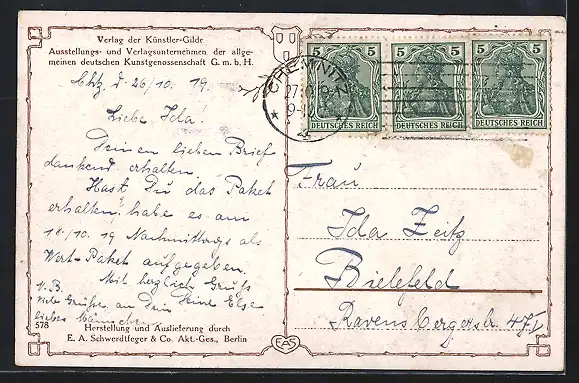 Verlag der Künstler-Gilde
Ausstellungs- und Verlagsunternehmen der allge-
meinen deutschen Kunstgenossenschaft G. m. b. H.
Chtz d. 26/10. 19.
Liebe Ida!
Deinen lieben Brief
dankend erhalten.
Hast Du das Paket
erhalten? habe es am
18./10. 19 Nachmittags als
Wert-Paket aufgegeben.
Mit herzlich Gruß
Deine Else
N. B.
viele Grüße an Dein
liebes Männchen
578
Herstellung und Auslieferung durch
E. A. Schwerdtfeger & Co. Akt.-Ges., Berlin
EAS
CHEMNITZ
27
5 5
DEUTSCHES REICH
5 5
DEUTSCHES REICH
5 5
DEUTSCHES REICH
Frau
Ida Zeitz
Bielefeld
Ravensbergerstr. 47I